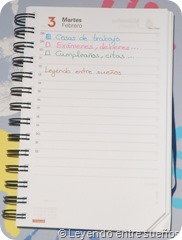 3 Martes
Febrero
Cosas de trabajo
Exámenes, deberes...
Cumpleaños, citas...
Leyendo entre sueños
©Leyendo entre sueños